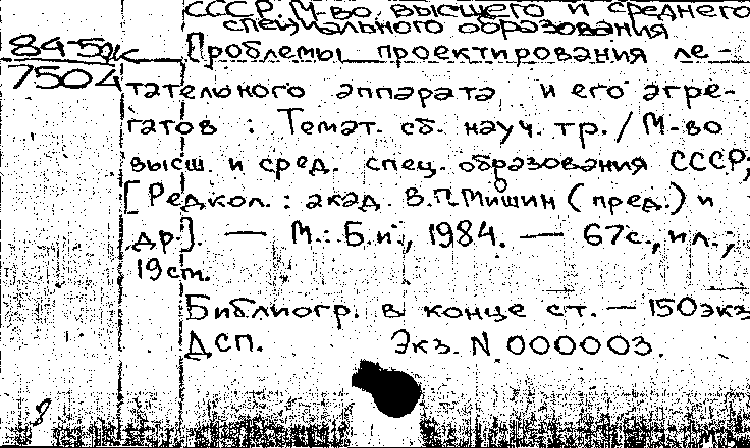 СССР. М-во высшего и среднего
специального образования
84-59к
7504
Проблемы проектирования ле-
тательного аппарата и его агре-
гатов : Темат. сб. науч. тр. / М-во
высш. и сред. спец. образования СССР;
[Редкол. : акад. В.П. Мишин (пред.) и
др.]. — М. : Б.и., 1984. — 67с., ил.;
19 cm.
Библиогр. в конце ст. — 150 экз
ДСП. Экз. N 000003.